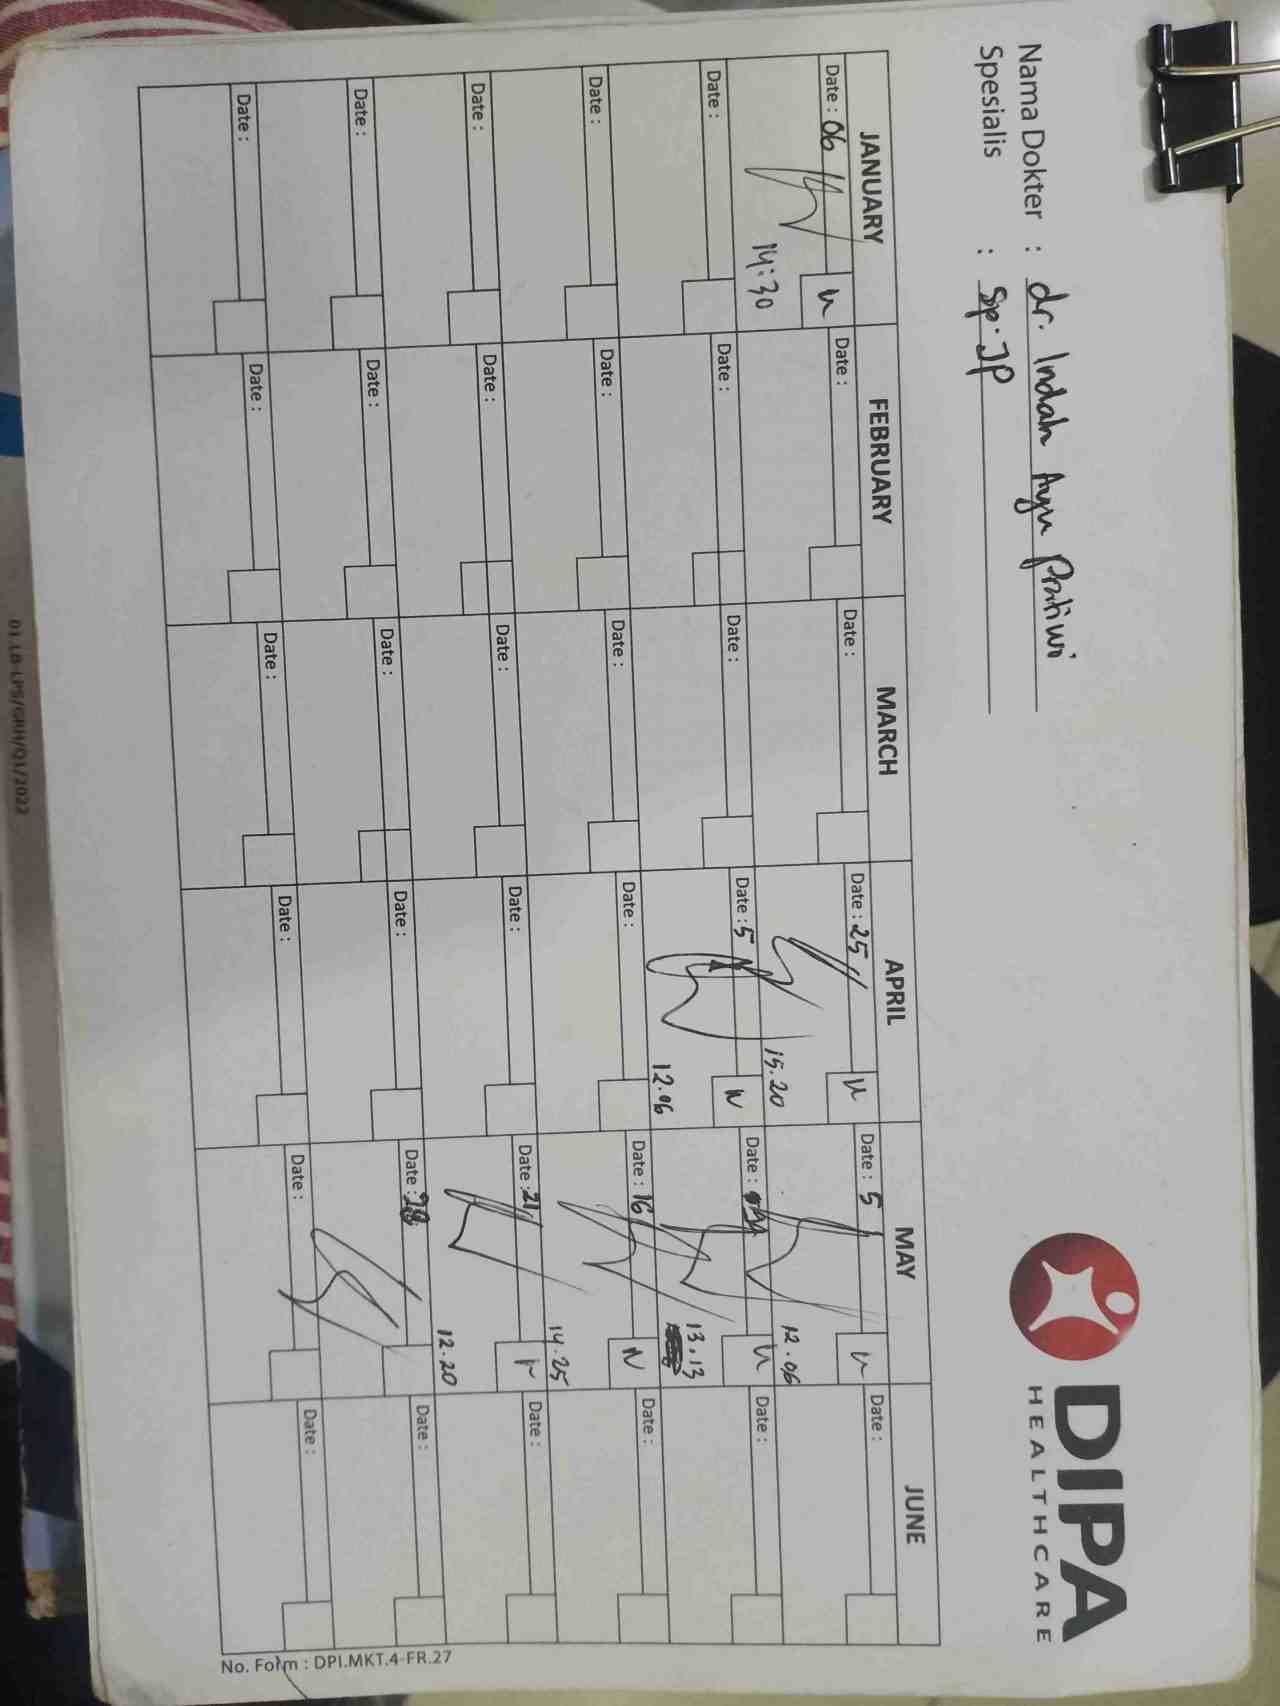 Nama Dokter : dr. Indah Ayu Pratiwi
Spesialis : Sp.JP
DIPA
HEALTHCARE
JANUARY FEBRUARY MARCH APRIL MAY JUNE
Date : 06 Date : Date : Date : 25 Date : 5 Date :
14:30 15.20 12.06
Date : Date : Date : Date : 5 Date : Date :
12.06 13.13
Date : Date : Date : Date : Date : 16 Date :
14.25
Date : Date : Date : Date : Date : 21 Date :
12.20
Date : Date : Date : Date : Date : 28 Date :
Date : Date : Date : Date : Date : Date :
No. Form : DPI.MKT.4-FR.27
01.LB-LPS/GKH/Q1/2022